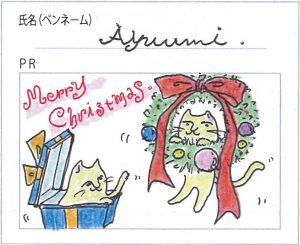 氏名(ペンネーム)
Ayumi.
PR
Merry
Christmas.